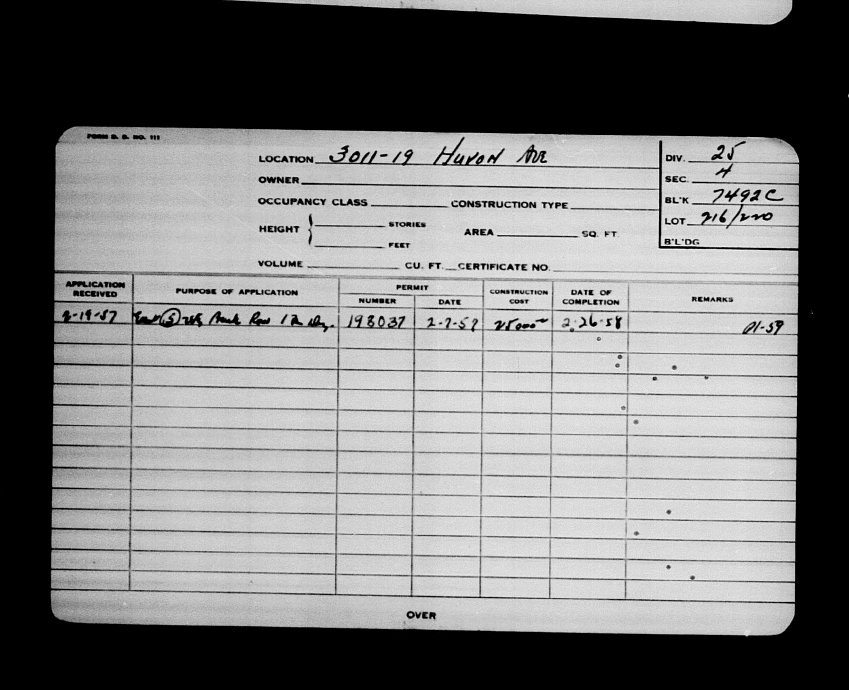 FORM D. B. NO. 111
LOCATION 3011-19 Huron Ave
DIV. 25
SEC. 4
OWNER
BL'K 7492C
OCCUPANCY CLASS CONSTRUCTION TYPE
LOT 216/220
HEIGHT STORIES
FEET
AREA SQ. FT.
B'L'DG
VOLUME CU. FT. CERTIFICATE NO.
APPLICATION RECEIVED PURPOSE OF APPLICATION PERMIT NUMBER DATE CONSTRUCTION COST DATE OF COMPLETION REMARKS
2-19-57 (5) Row 198037 2-7-57 25000 2-26-58 01-59
OVER